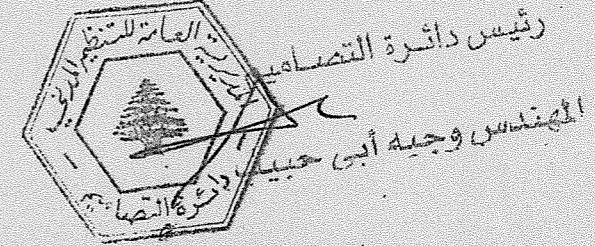 رئيس دائرة التصاميم
المهندس وجيه أبي حبيب
المديرية العامة للتنظيم المدني
دائرة التصاميم